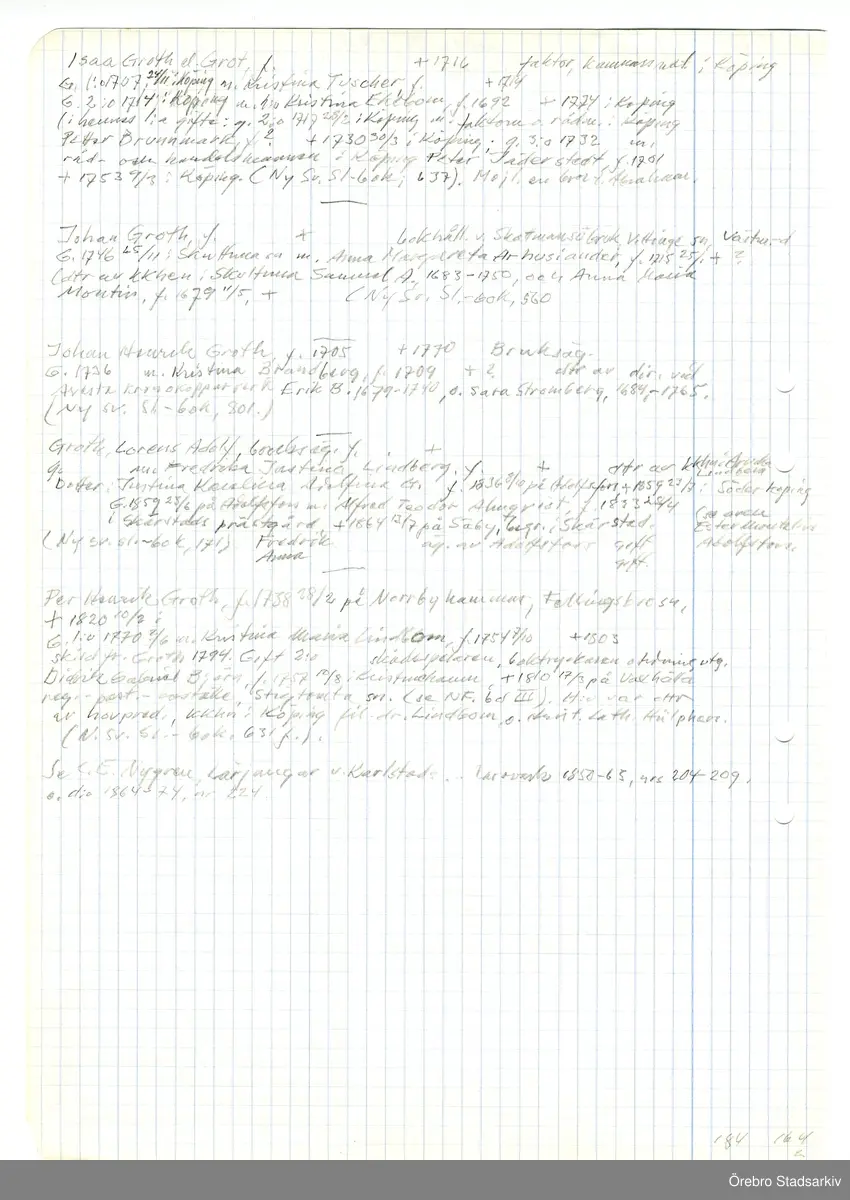 Isaa Groth el. Grot, f. + 1716 faktor, i Köping
G. 1:o 1707 24/11 i Köping m. Kristina Tuscher, f. + 1714
G. 2:o 1714 i Köping m. Kristina Ekebom, f. 1692 + 1774 i Köping
(i hennes 1:a gifte: g. 2:o 1717 28/2 i Köping m. faktorn o. rådm. i Köping
Petter Brunnmark, f. ? + 1730 30/3 i Köping; g. 3:o 1732 m.
råd- och handelsmannen i Köping Peter Jäderstedt, f. 1701
+ 1753 9/3 i Köping. (Ny Sv. Sl-bok, 637). Möjl. en bror t. Abraham.
Johan Groth, f. + bokhåll. v. Skatmansöbruk, Vittinge sn, Västm-d
G. 1746 25/11 i Skultuna sn m. Anna Margareta Arhusiander, f. 1715 25/1 + ?
(dtr av kkhen i Skultuna Samuel A. 1683-1750, och Anna Maria
Montin, f. 1679 11/5, + (Ny Sv. Sl.-bok, 560
Johan Henrik Groth, f. 1705 + 1770 Bruksäg.
G. 1736 m. Kristina Brandberg, f. 1709 + ? dtr av dir. vid
Avesta kronokopparverk Erik B. 1679-1740, o. Sara Stromberg, 1684-1765.
(Ny sv. Sl-bok, 801.)
Groth, Lorens Adolf, bruksäg. f. +
g. m. Fredrika Justina Lindberg, f. + dtr av kkhn i
Dotter: Justina Karolina Adolfina f. 1836 på Adolfsfors + 1859 i Söderköping
G. 1859 25/6 på Adolfsfors m. Alfred Teodor Almqvist, f. 1833 28/4
i Skärstads prästgård, + 1864 12/7 på Säby, begr. i Skärstad. (se även
(Ny sv. sl-bok, 171) Fredrik äg. av Adolfsfors gift Adolfsfors.
Anna gift.
Per Henrik Groth, f. 1738 28/2 på Norrby hammar, Fellingsbro sn,
+ 1820 10/2 i
G. 1:o 1770 7/6 m. Kristina Maria Lindbom, f. 1754 7/10 + 1803
skild fr. Groth 1794. Gift 2:o skådespelaren, boktryckaren o tidning utg.
Didrik Gabriel Björn, f. 1757 10/8 i Kristinehamn + 1810 17/3 på Vaxhälla
regi-post- Stigtomta sn. (se NF. bd III). Hon var dttr
av hovpred., kkhn i Köping fil. dr. Lindbom, o. Krist. Kath. Hülphers.
(N. Sv. Sl.-bok, 631 f.).
Se C. E. Nygren, Lärjungar v. Karlstads ... läroverk 1850-63, nrs 204-209.
o. d:o 1864-74, nr 224.
184 164
Örebro Stadsarkiv